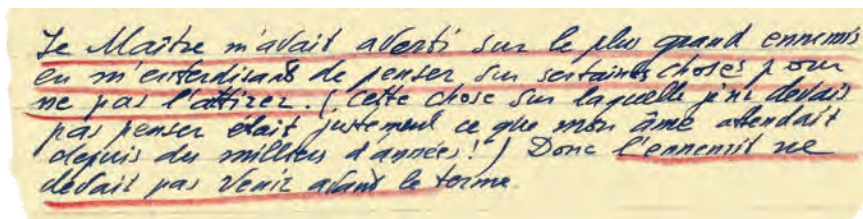 Le Maître m'avait averti sur le plus grand ennemis
en m'enterdisant de penser sur sertaints choses pour
ne pas l'attirer. (Cette chose sur laquelle je ne devais
pas penser était justement ce que mon âme attendait
depuis des milliers d'années!) Donc l'ennemit ne
devait pas venir avant le terme.